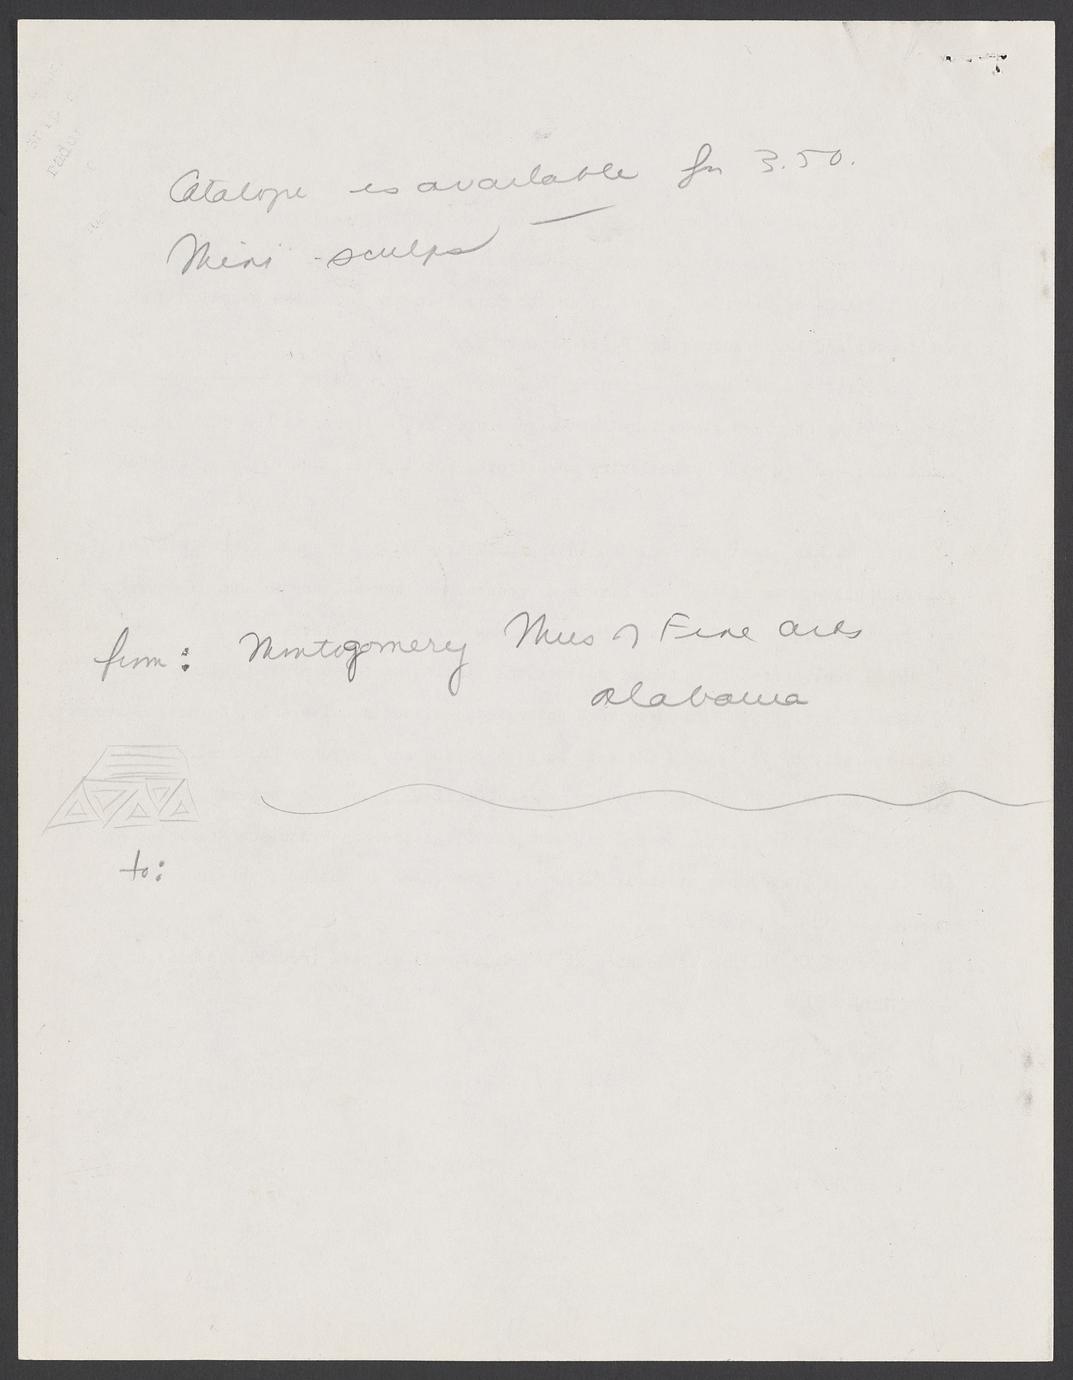 Catalogue is available for 3.50.
Mini-sculps
from: Montgomery Mus of Fine arts
alabama
to: